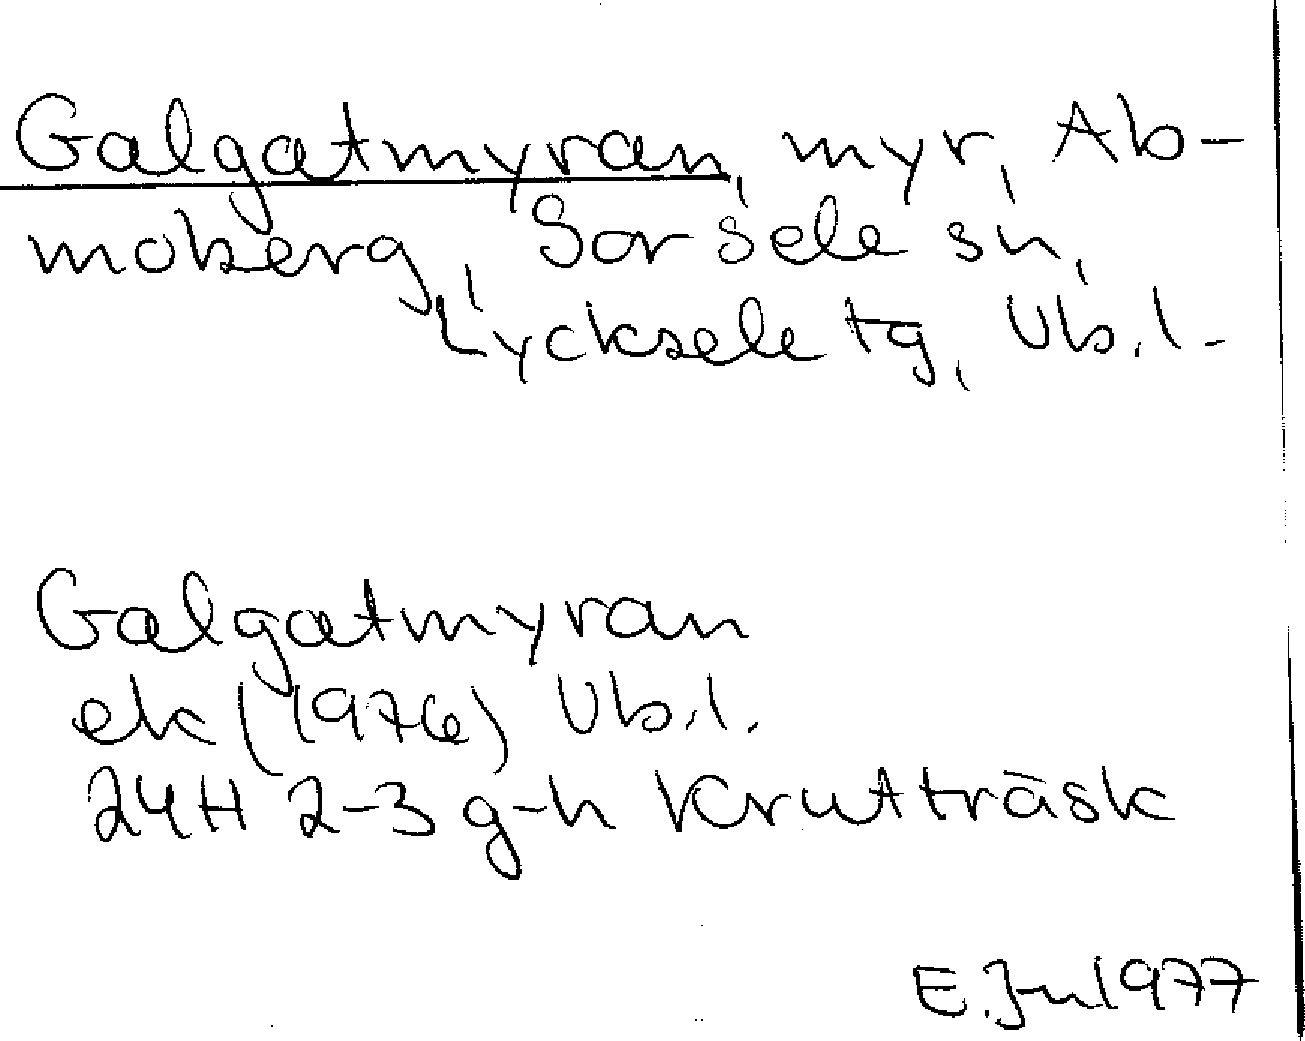 Galgatmyran, myr, Ab-
moberg, Sorsele sn,
Lycksele tg, Vb.l.
Galgatmyran
ek (1976) Vb.l.
24H 2-3 g-h Krutträsk
E. 1977